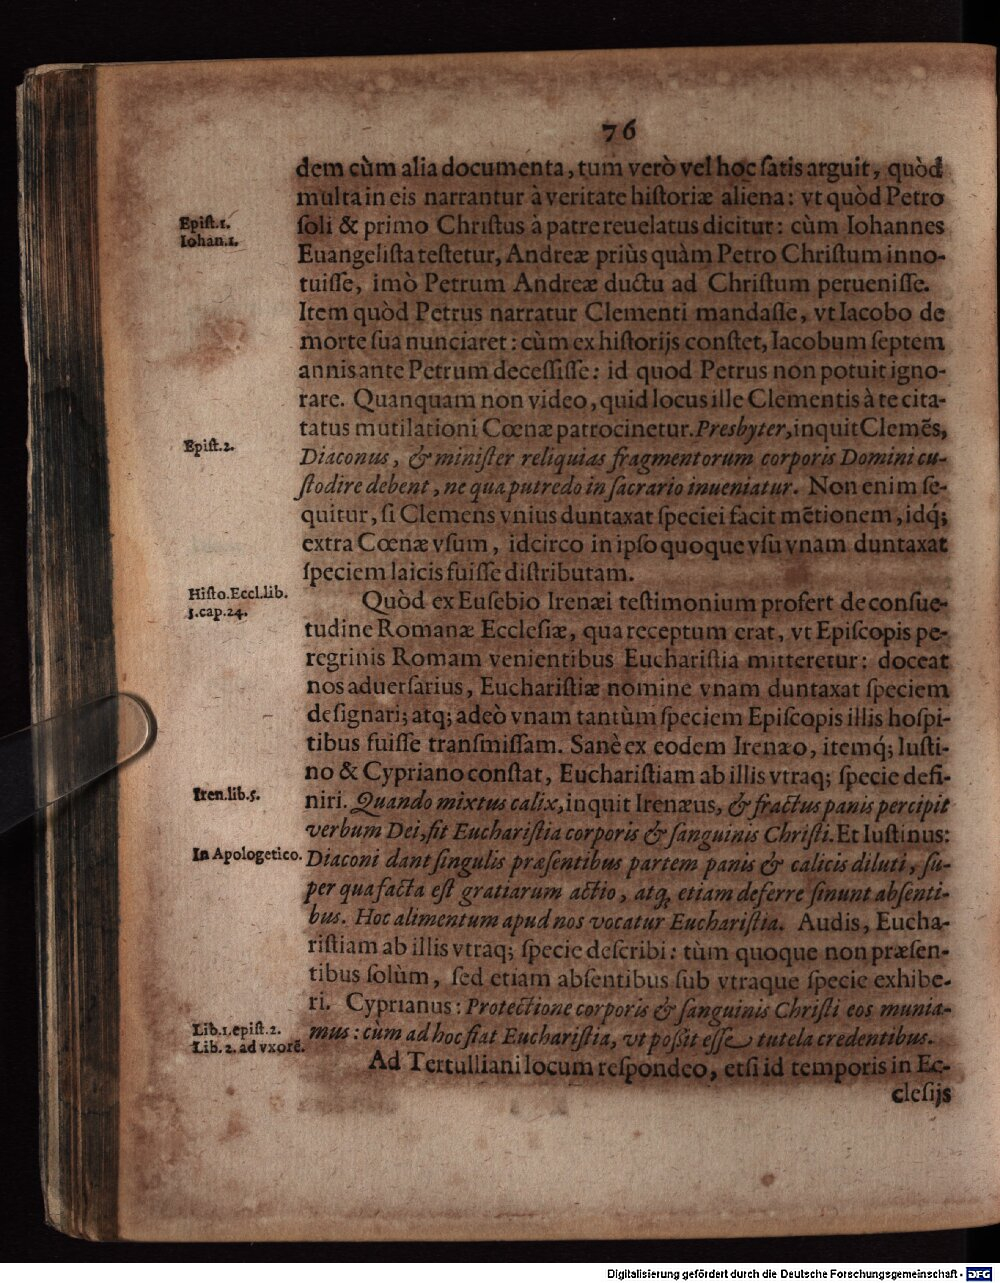 76
dem cùm alia documenta, tum verò vel hoc ſatis arguit, quòd
multa in eis narrantur à veritate hiſtoriæ aliena: vt quòd Petro
Epiſt.1.
Iohan.1.
ſoli & primo Chriſtus à patre reuelatus dicitur: cùm Iohannes
Euangeliſta teſtetur, Andreæ priùs quàm Petro Chriſtum inno-
tuiſſe, imò Petrum Andreæ ductu ad Chriſtum perueniſſe.
Item quòd Petrus narratur Clementi mandaſſe, vt Iacobo de
morte ſua nunciaret: cùm ex hiſtorijs conſtet, Iacobum ſeptem
annis ante Petrum deceſſiſſe: id quod Petrus non potuit igno-
rare. Quanquam non video, quid locus ille Clementis à te cita-
tatus mutilationi Cœnæ patrocinetur. Presbyter, inquit Clemẽs,
Epiſt.2.
Diaconus, & miniſter reliquias fragmentorum corporis Domini cu-
ſtodire debent, ne qua putredo in ſacrario inueniatur. Non enim ſe-
quitur, ſi Clemens vnius duntaxat ſpeciei facit mẽtionem, idq́;
extra Cœnæ vſum, idcirco in ipſo quoque vſu vnam duntaxat
ſpeciem laicis fuiſſe diſtributam.
Hiſto.Eccl.lib.
5.cap.24.
Quòd ex Euſebio Irenæi teſtimonium profert de conſue-
tudine Romanæ Eccleſiæ, qua receptum erat, vt Epiſcopis pe-
regrinis Romam venientibus Euchariſtia mitteretur: doceat
nos aduerſarius, Euchariſtiæ nomine vnam duntaxat ſpeciem
deſignari; atq; adeò vnam tantùm ſpeciem Epiſcopis illis hoſpi-
tibus fuiſſe tranſmiſſam. Sanè ex eodem Irenæo, itemq́; Iuſti-
no & Cypriano conſtat, Euchariſtiam ab illis vtraq; ſpecie defi-
Iren.lib.5.
niri. Quando mixtus calix, inquit Irenæus, & fractus panis percipit
verbum Dei, fit Euchariſtia corporis & ſanguinis Chriſti. Et Iuſtinus:
In Apologetico.
Diaconi dant ſingulis præſentibus partem panis & calicis diluti, ſu-
per qua facta eſt gratiarum actio, atq; etiam deferre ſinunt abſenti-
bus. Hoc alimentum apud nos vocatur Euchariſtia. Audis, Eucha-
riſtiam ab illis vtraq; ſpecie deſcribi: tùm quoque non præſen-
tibus ſolùm, ſed etiam abſentibus ſub vtraque ſpecie exhibe-
ri. Cyprianus: Protectione corporis & ſanguinis Chriſti eos munia-
Lib.1.epiſt.2.
mus: cum ad hoc fiat Euchariſtia, vt poßit eſſe tutela credentibus.
Lib.2.ad vxorẽ.
Ad Tertulliani locum reſpondeo, etſi id temporis in Ec-
cleſijs
Digitalisierung gefördert durch die Deutsche Forschungsgemeinschaft - DFG